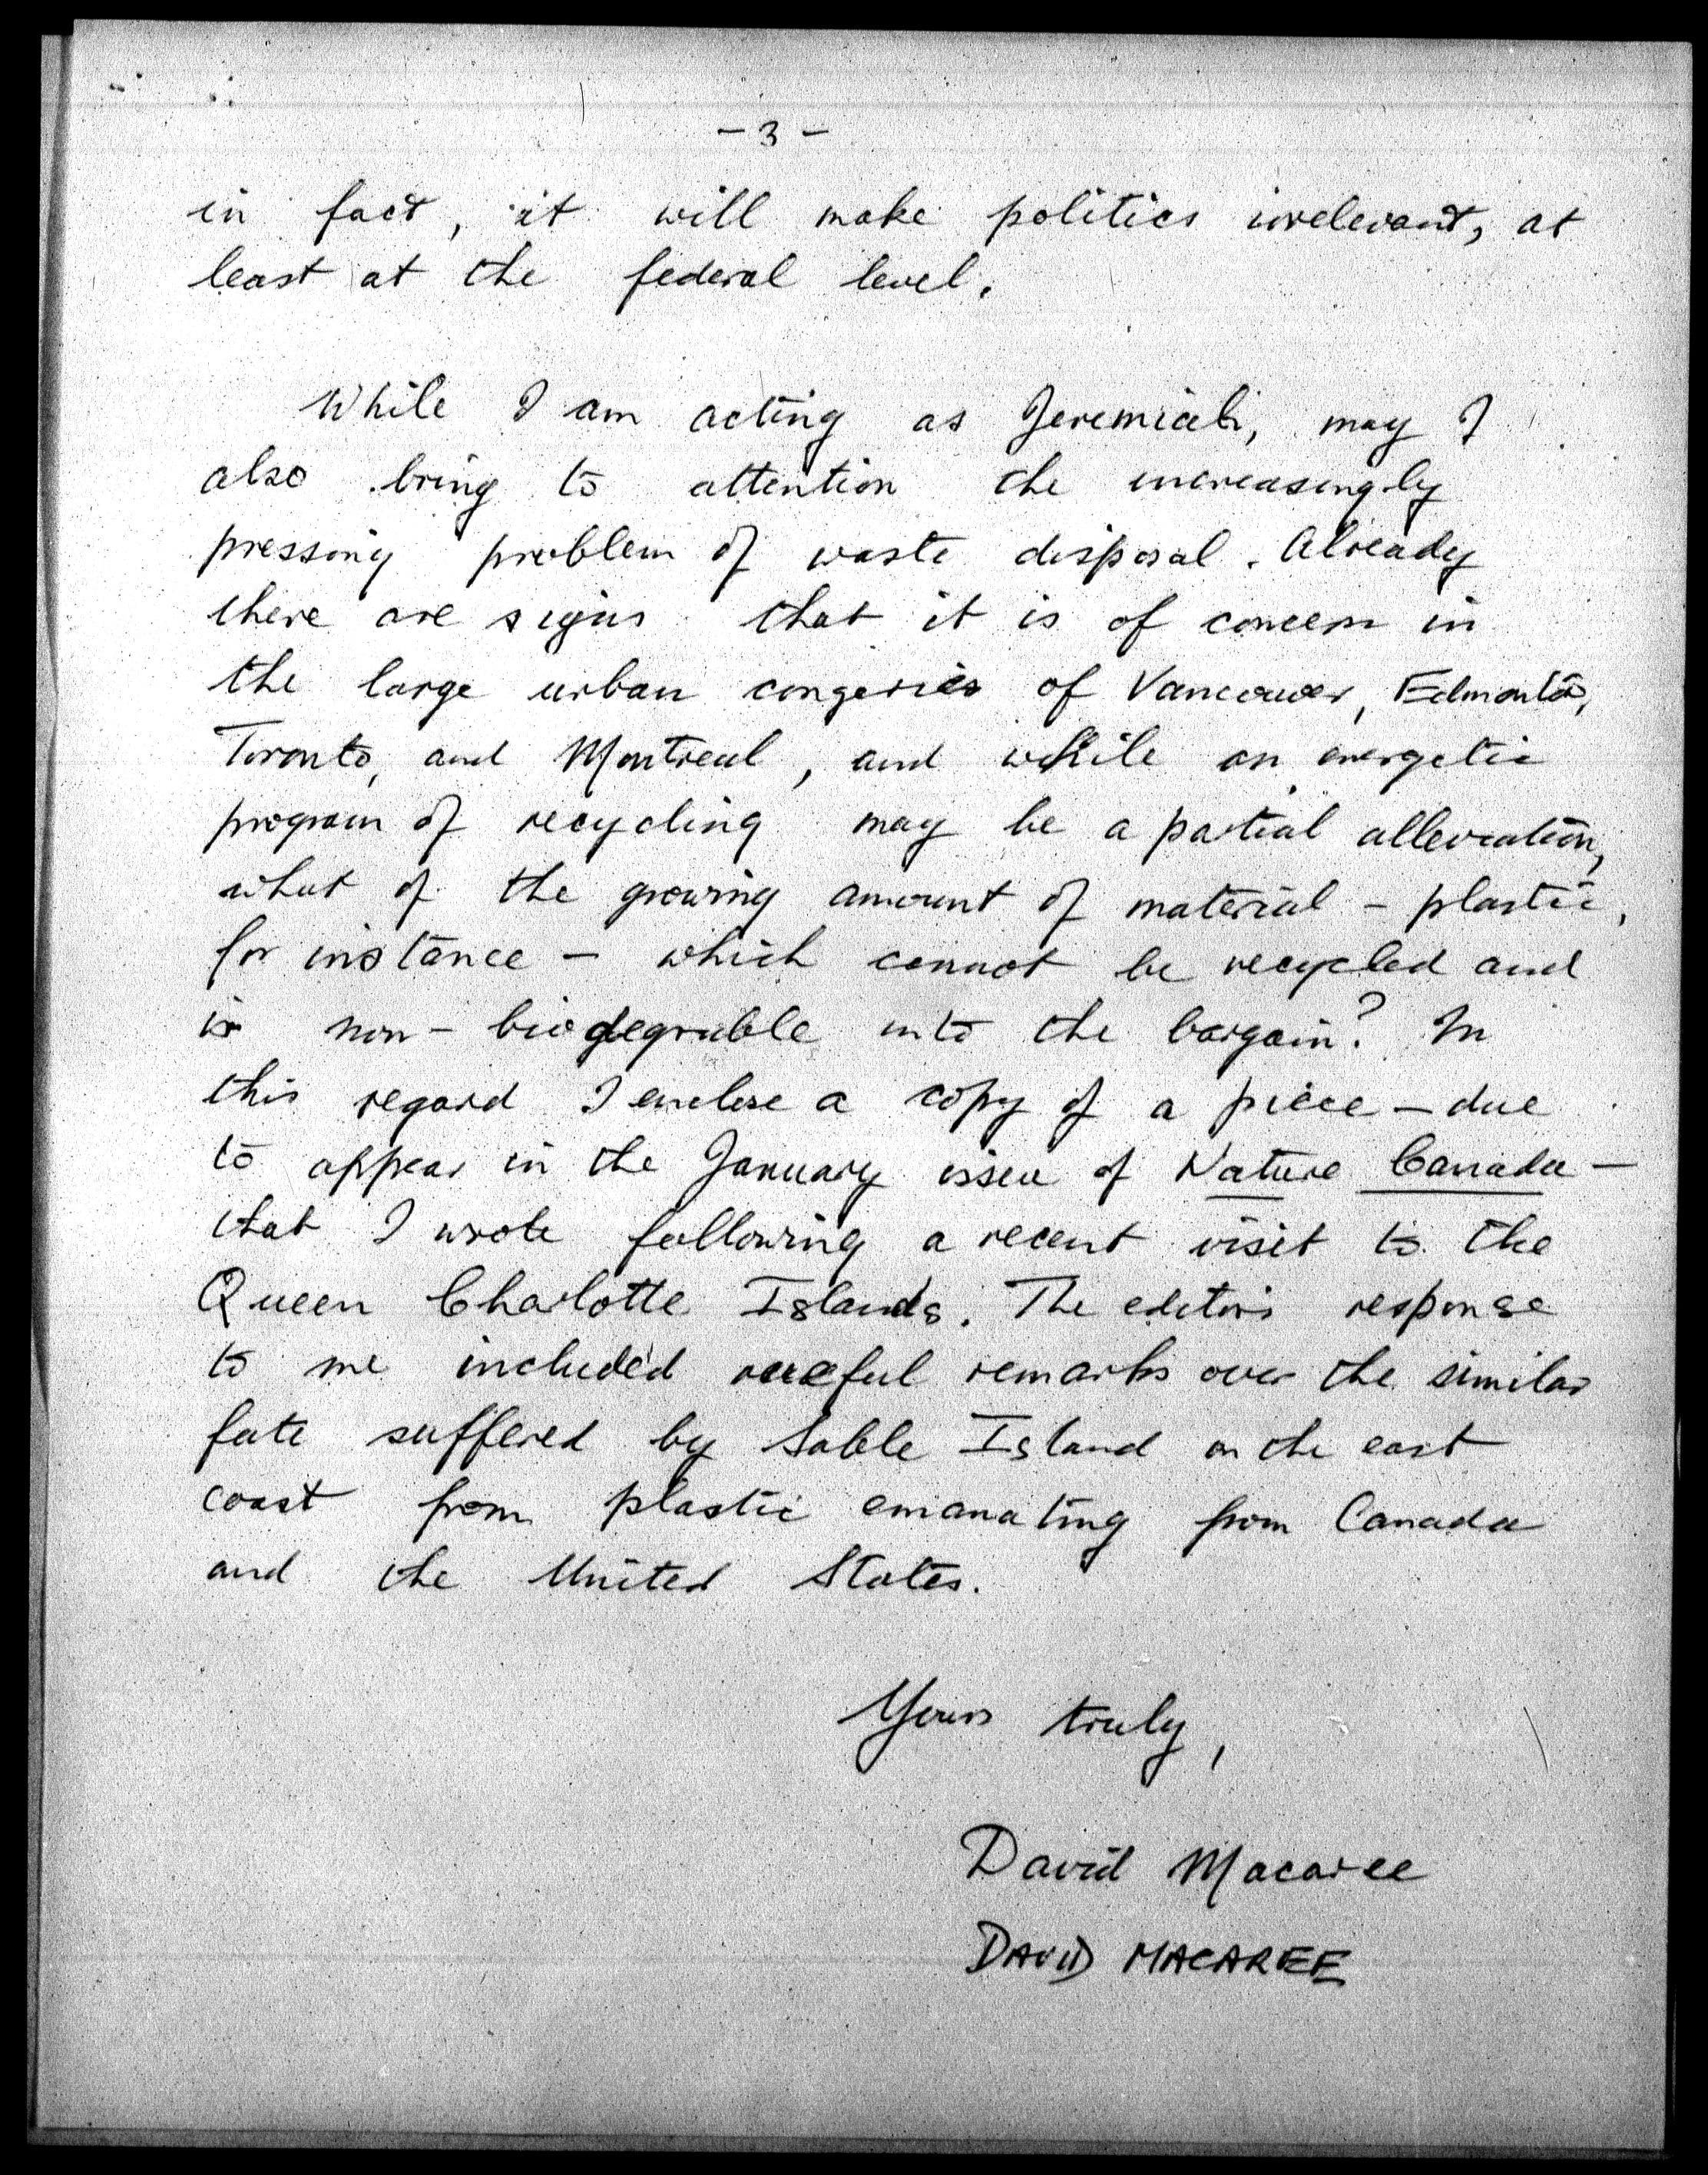 - 3 -
in fact, it will make politics irrelevant, at
least at the federal level.
While I am acting as Jeremiah, may I
also bring to attention the increasingly
pressing problem of waste disposal. Already
there are signs that it is of concern in
the large urban congeries of Vancouver, Edmonton,
Toronto, and Montreal, and while an energetic
program of recycling may be a partial alleviation,
what of the growing amount of material - plastic,
for instance - which cannot be recycled and
is non-biodegrable into the bargain? In
this regard I enclose a copy of a piece - due
to appear in the January issue of Nature Canada -
that I wrote following a recent visit to the
Queen Charlotte Islands. The editor's response
to me included rueful remarks over the similar
fate suffered by Sable Island on the east
coast from plastic emanating from Canada
and the United States.
Yours truly,
David Macaree
DAVID MACAREE